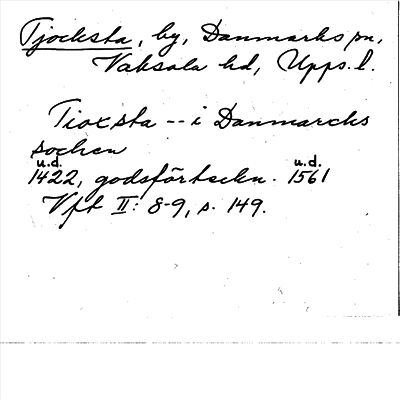 Tjocksta, by, Danmarks sn,
Vaksala hd, Upps. l.
Tioxsta -- i Danmarcks
sochen
u.d. u.d.
1422, godsförteckn. 1561
Vft II: 8-9, s. 149.